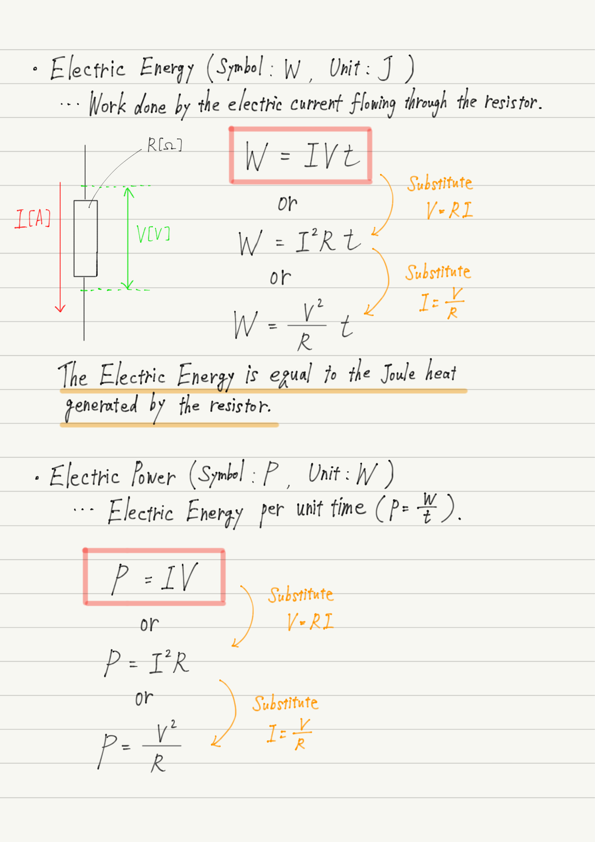 ・Electric Energy (Symbol: W, Unit: J)
… Work done by the electric current flowing through the resistor.
R[Ω]
I[A]
V[V]
W = IVt
Substitute
V=RI
or
W = I²Rt
Substitute
I = V/R
or
W = V²/R t
The Electric Energy is equal to the Joule heat
generated by the resistor.
・Electric Power (Symbol: P, Unit: W)
… Electric Energy per unit time (P = W/t).
P = IV
Substitute
V=RI
or
P = I²R
or
Substitute
I = V/R
P = V²/R